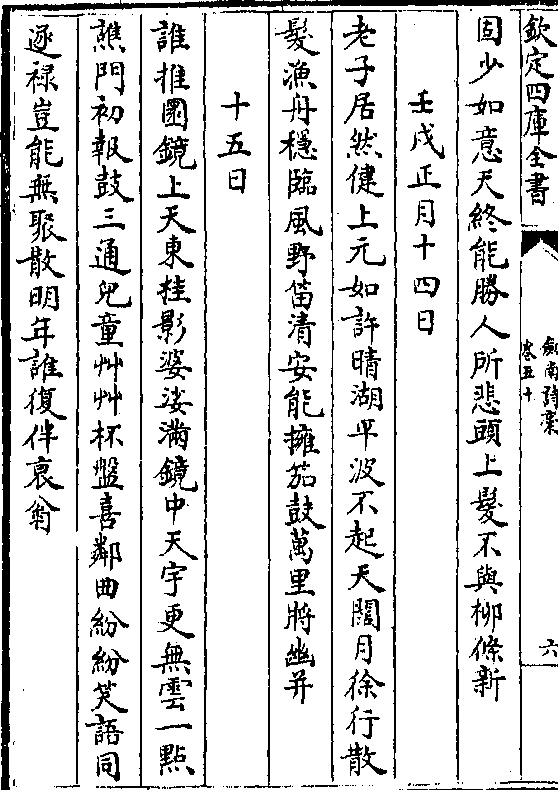 欽定四庫全書
劍南詩稾
卷五十
六
固少如意天終能勝人所悲頭上髮不與柳條新
壬戌正月十四日
老子居然健上元如許晴湖平波不起天闊月徐行散
髮漁舟穩臨風野笛清安能擁笳鼓萬里將幽并
十五日
誰推圎鏡上天東桂影婆娑滿鏡中天宇更無雲一㸃
譙門初報鼓三通兒童艸艸杯盤喜鄰曲紛紛笑語同
逐禄豈能無聚散明年誰復伴衰翁